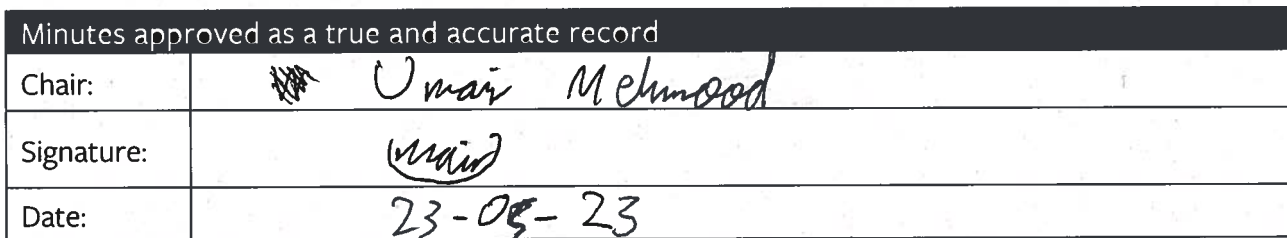 Minutes approved as a true and accurate record
Chair: Umair Mehmood
Signature: Umair
Date: 23-05-23